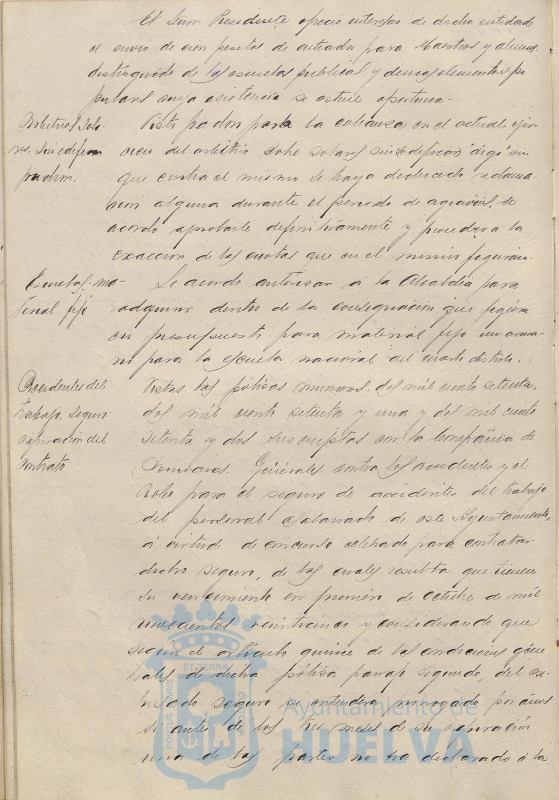 El Señor Presidente apoyo interesa de dicha entidad
el envio de cien pesetas de entradas para Maestros y alumnos
distinguidos de las escuelas publicas, y demas elementos po
pulares cuya asistencia se estime oportuna.
Arbitrios Sola-
res, sin edificar
padron.
Visto padron para la cobranza en el actual ejer-
cicio del arbitrio sobre solares sin edificar
que contra el mismo se haya deducido reclama-
cion alguna durante el periodo de agravios, se
acordo aprobarle definitivamente y proceder a la
exaccion de las cuotas que en el mismo figuran.
Escuelas, ma-
terial fijo
Se acordo autorizar a la Alcaldia para
adquirir dentro de la consignacion que figura
en presupuesto para material fijo un arma-
rio para la escuela nacional del cuarto distrito.
Accidentes del
trabajo, seguro
expiracion del
contrato
Vistas las polizas numeros dos mil ciento setenta,
dos mil ciento setenta y una y dos mil ciento
setenta y dos suscriptas con la Compañia de
Generales contra los accidentes y el
Robo para el seguro de accidentes del trabajo
del personal asalariado de este Ayuntamiento,
a virtud de concurso celebrado para contratar
dicho seguro, de las cuales resulta que tienen
su vencimiento en primero de Octubre de mil
novecientos veintinueve y considerando que
segun el articulo quince de las condiciones gene
rales de dicha póliza parrafo segundo, del ex-
presado seguro se entendera prorrogado por años
si antes de los tres meses de su expiracion
una de las partes no ha declarado a la
Ayuntamiento de
HUELVA